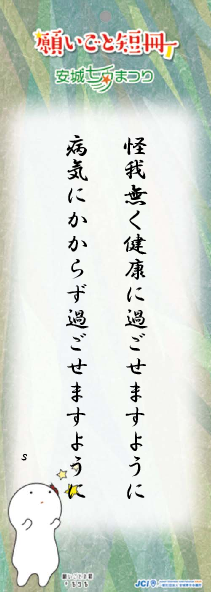 願いごと短冊
安城七夕まつり
怪我無く健康に過ごせますように
病気にかからず過ごせますように
s
JCI